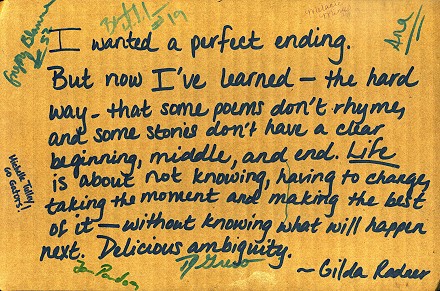 I wanted a perfect ending.
But now I've learned — the hard
way - that some poems don't rhyme,
and some stories don't have a clear
beginning, middle, and end. Life
is about not knowing, having to change,
taking the moment and making the best
of it — without knowing what will happen
next. Delicious ambiguity.
~ Gilda Radner
Michelle Tully!
Go Gators!